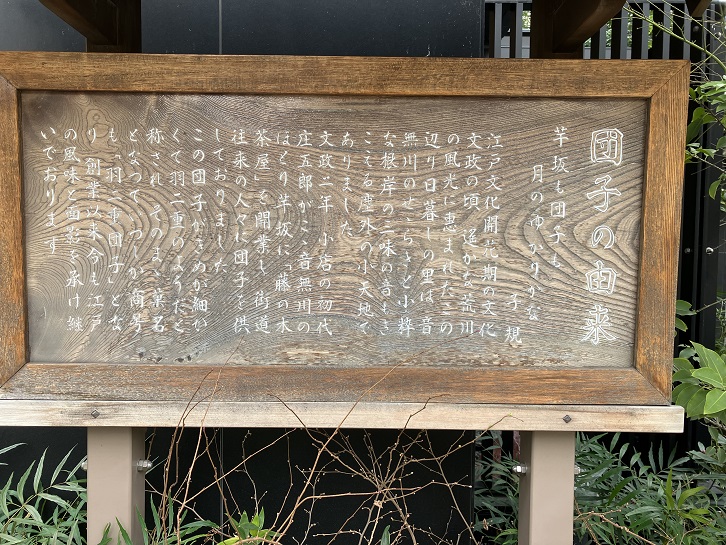 団子の由来
芋坂も団子も
月のゆかりかな
子規
江戸文化開花期の文化
文政の頃 遥かな荒川
の風光に恵まれたこの
辺り日暮しの里は、音
無川のせゝらぎと小粋
な根岸の三味の音もき
こえる塵外の小天地で
ありました
文政二年 小店の初代
庄五郎がここ音無川の
ほとり芋坂に「藤の木
茶屋」を開業し 街道
往来の人々に団子を供
しておりました
この団子がきめが細か
くて羽二重のようだと
称され そのまゝ菓名
となって いつしか商号
も「羽二重団子」とな
り 創業以来今も江戸
の風味と面影を承け継
いでおります